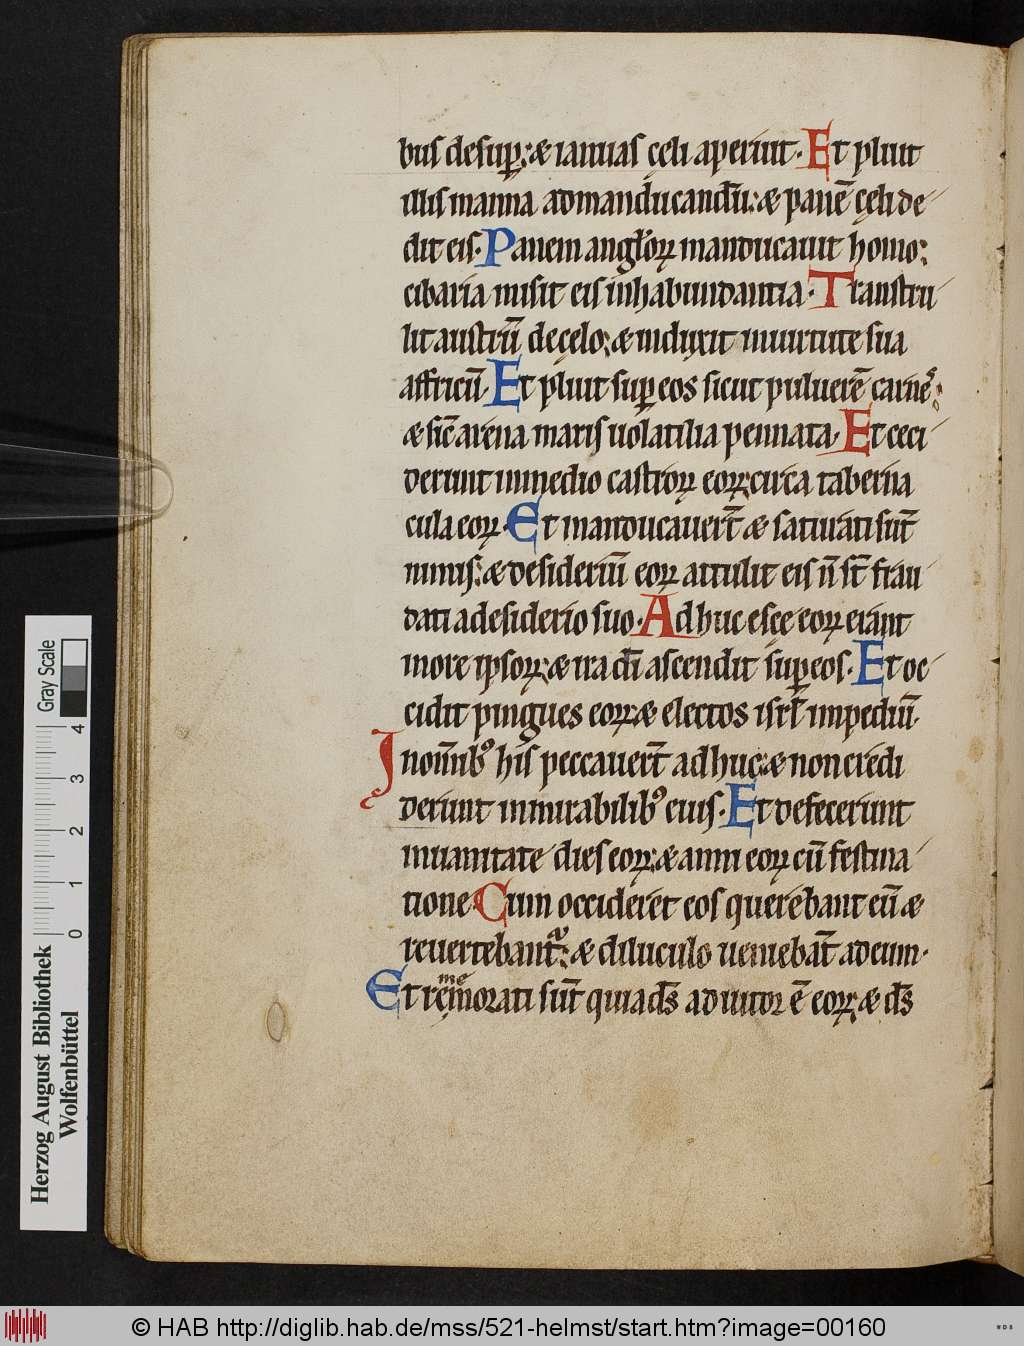 bus desuꝑ: ⁊ ianuas cęli aperuit· Et pluit
illis manna admanducandū: ⁊ panē cęli de
dit eis· Panem angłoꝝ manducauit homo:
cibaria misit eis inhabundantia· Transtu
lit austrū decęlo: ⁊ induxit inuirtute sua
affricū· Et pluit suꝑ eos sicut puluerē carnes:
⁊ sic̄ arena maris uolatilia pennata· Et ceci
derunt inmedio castroꝝ eoꝝ: circa taberna
cula eoꝝ· Et manducauerт̄ ⁊ saturati sūt
nimis: ⁊ desideriū eoꝝ attulit eis n̄ sт̄ frau
dati adesiderio suo· Adhuc escę eoꝝ erant
inore ipsoꝝ: ⁊ ira dī ascendit suꝑ eos· Et oc
cidit pingues eoꝝ: ⁊ electos isrł impediuī·
Inom̄ibꝰ his peccauerт̄ adhuc: ⁊ noncredi
derunt inmirabilibꝰ eius· Et defecerunt
inuanitate dies eoꝝ: ⁊ anni eoꝝ cū festina
tione· Cum occideret eos querebant eū ⁊
reuertebant᷑: ⁊ diluculo ueniebāt adeum·
Et rememorati sūt quia ds̄ adiutor ē eoꝝ: ⁊ ds̄
Gray Scale
4
3
2
1
0
Herzog August Bibliothek
Wolfenbüttel
© HAB http://diglib.hab.de/mss/521-helmst/start.htm?image=00160